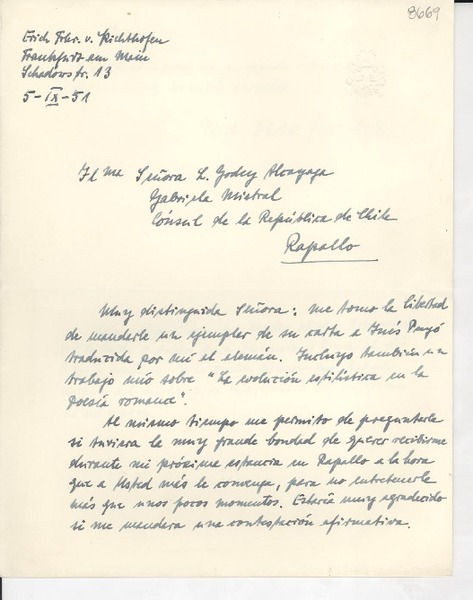 8669
Erich Frhr. v. Richthofen
Frankfurt am Main
Schadowstr. 13
5-IX-51
Ilma Señora L. Godoy Alcayaga
Gabriela Mistral
Cónsul de la República de Chile
Rapallo
Muy distinguida Señora: me tomo la libertad
de mandarle un ejemplar de su carta a Inés Puyó
traducida por mí al alemán. Incluyo también un
trabajo mío sobre "La evolución estilística en la
poesía romance".
Al mismo tiempo me permito de preguntarle
si tuviera la muy grande bondad de querer recibirme
durante mi próxima estancia en Rapallo a la hora
que a Usted más le convenga, para no entretenerle
más que unos pocos momentos. Estaría muy agradecido
si me mandara una contestación afirmativa.